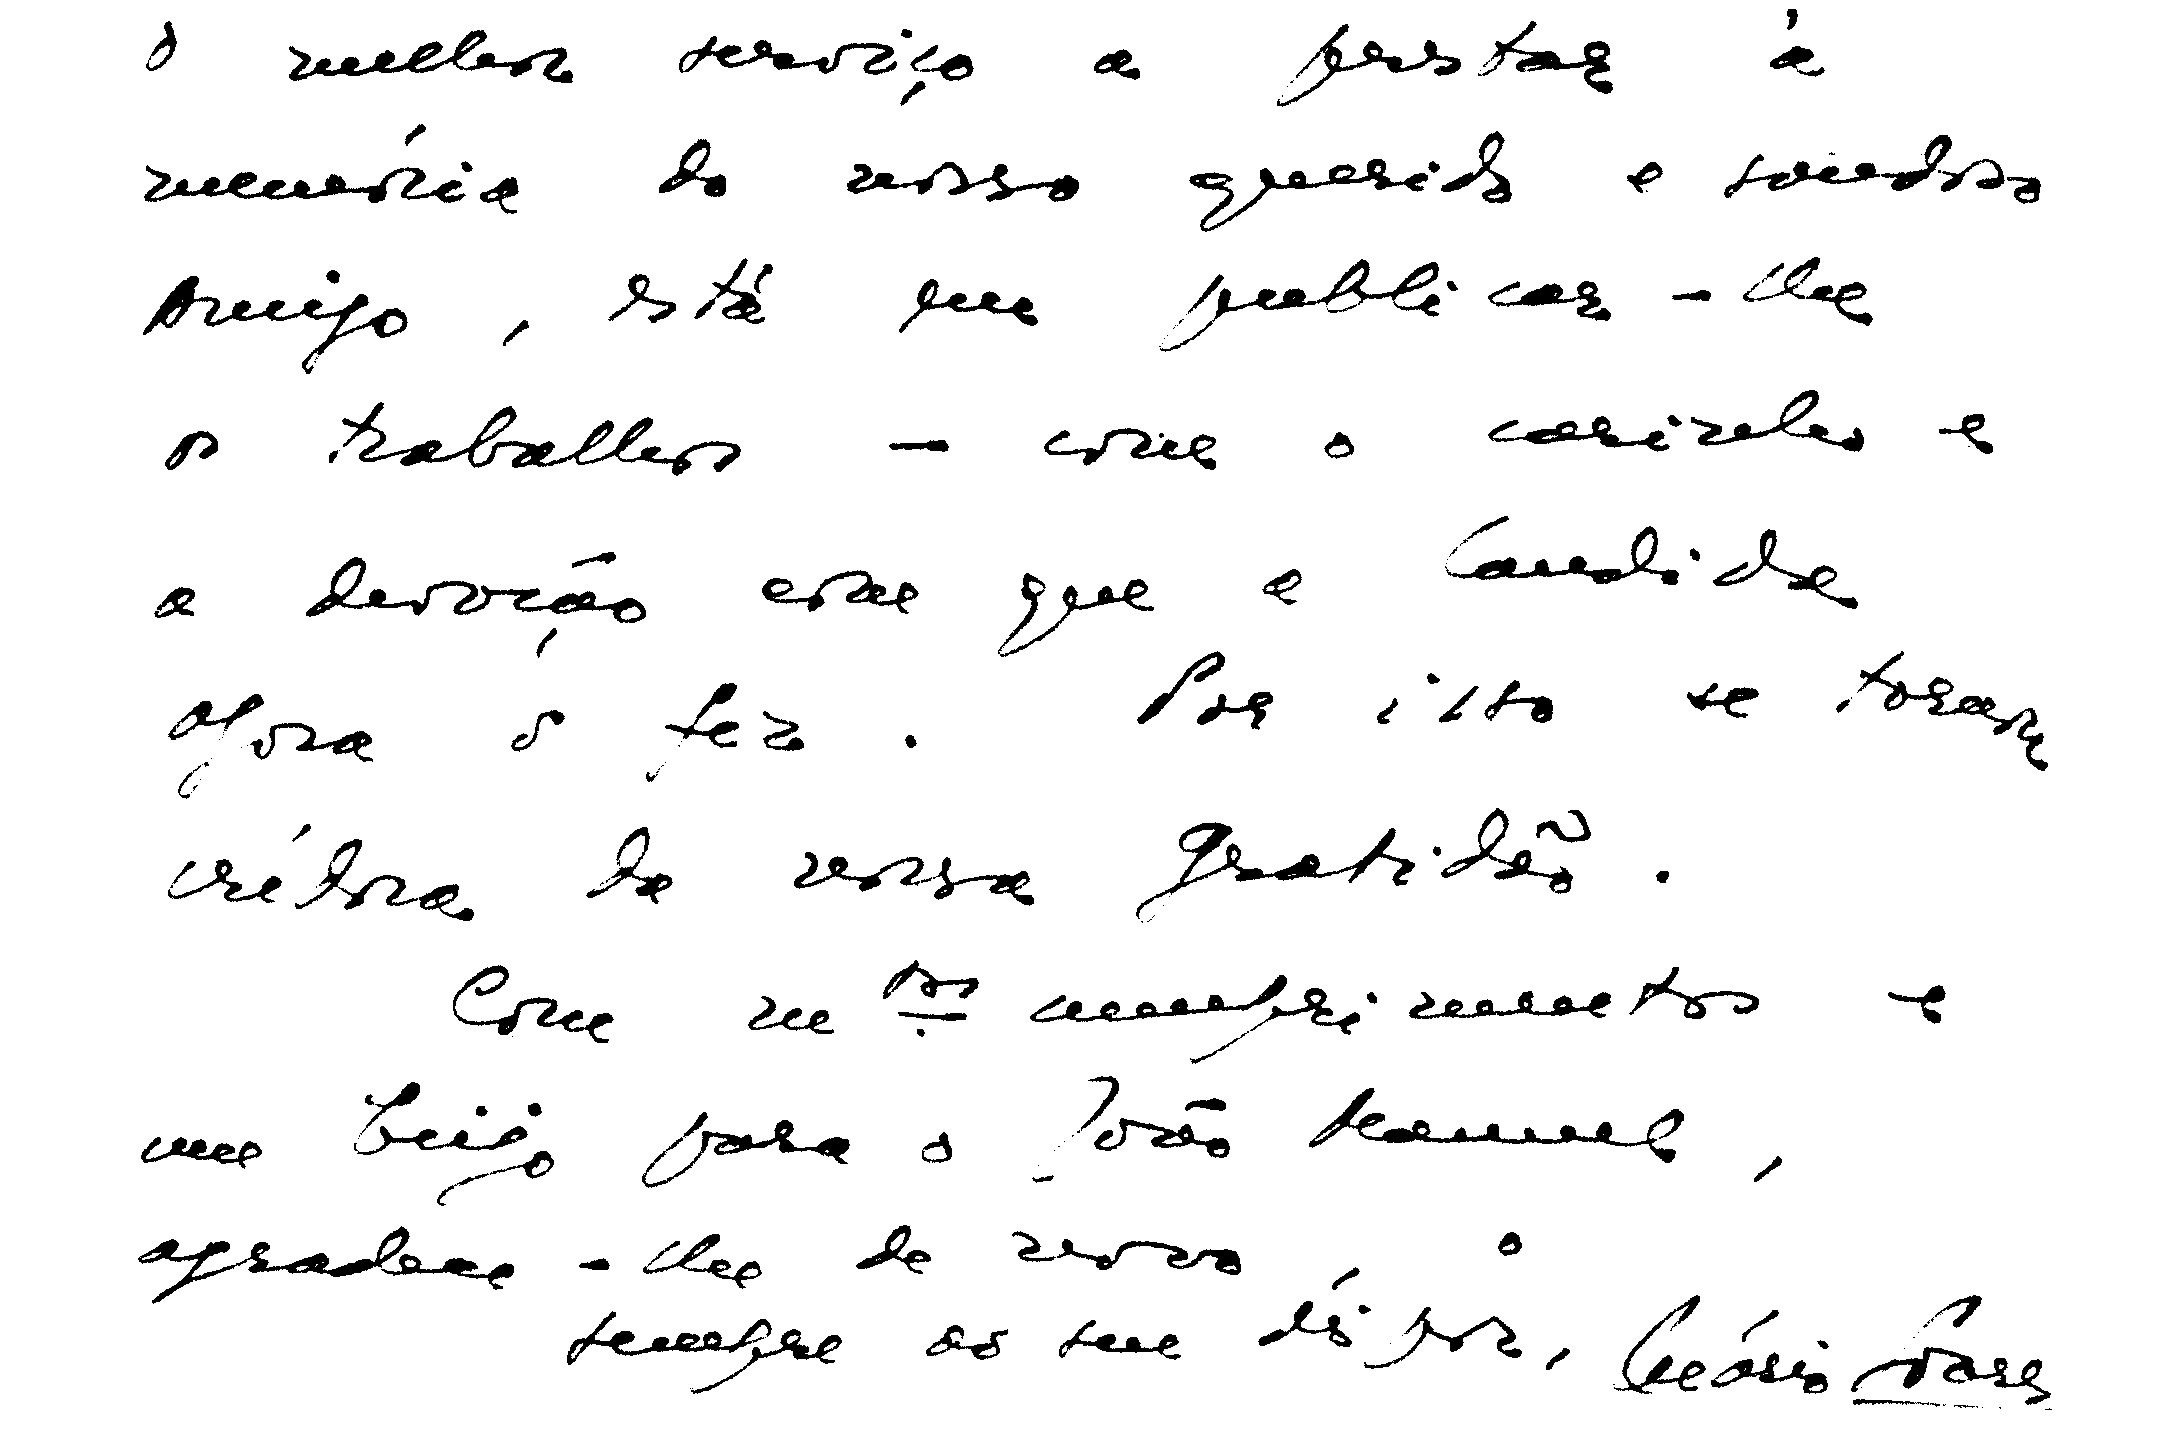 O melhor serviço a prestar à
memória do nosso querido e saudoso
Amigo, está em publicar-lhe
os trabalhos - com o carinho e
a devoção com que a Candida
agora o fez. Por isso se tornou
crédora da nossa gratidão.
Com mtos cumprimentos e
um beijo para o João Manuel,
agradece-lhe de novo, o
sempre ao seu dispor,